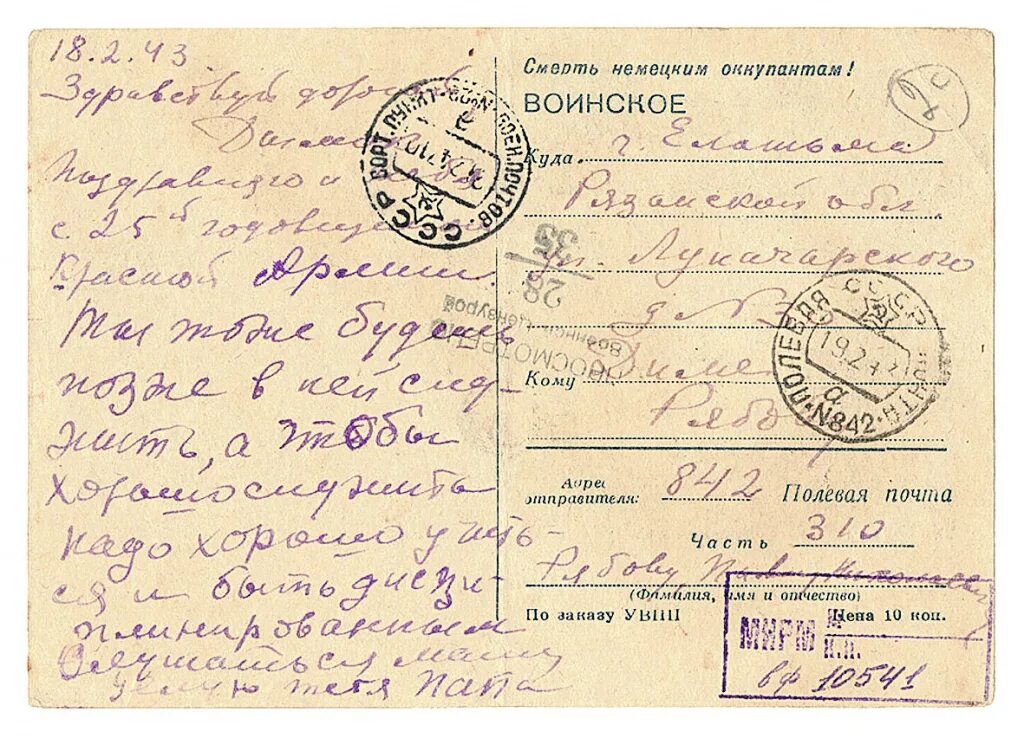 18.2.43
Здравствуй дорогой
Поздравляю
с 25й годовщиной
Красной Армии.
Ты тоже будешь
позже в ней слу-
жить, а чтобы
хорошо служить
надо хорошо учить-
ся и быть дисци-
плинированным
Слушаться маму
целую тебя папа
Смерть немецким оккупантам!
ВОИНСКОЕ
Куда г. Елатьма
Рязанской обл.
ул. Луначарского
д №
Кому Диме
Рябову
Адрес отправителя: 842 Полевая почта
Часть 310
Рябову
(Фамилия, имя и отчество)
По заказу УВПП
Цена 10 коп.
СССР
ПОЛЕВАЯ ПОЧТА
19.2.43
а
N842
СССР
ПРОСМОТРЕНО
Военной Цензурой
28
35
МИРМ
К.П.
вф 10541